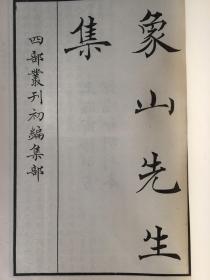 象山先生
集
四部叢刊初編集部